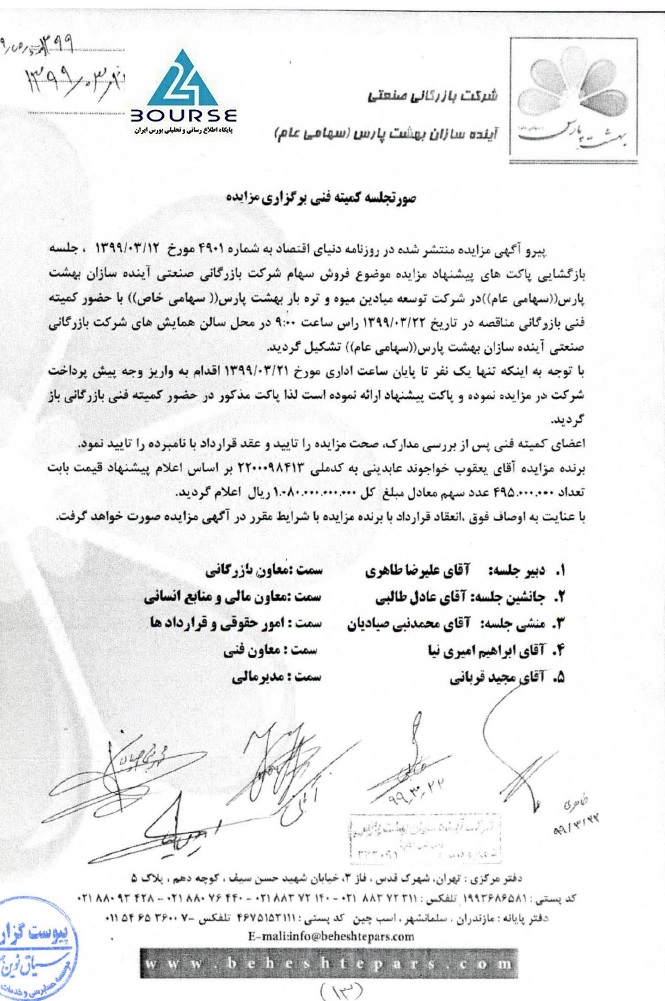 ۱۳۹۹/۰۳/۲۱
24
BOURSE
پایگاه اطلاع رسانی و تحلیلی بورس ایران
شرکت بازرگانی صنعتی
آینده سازان بهشت پارس (سهامی عام)
بهشت پارس
صورتجلسه کمیته فنی برگزاری مزایده
پیرو آگهی مزایده منتشر شده در روزنامه دنیای اقتصاد به شماره ۴۹۰۱ مورخ ۱۳۹۹/۰۳/۱۲ ، جلسه
بازگشایی پاکت های پیشنهاد مزایده موضوع فروش سهام شرکت بازرگانی صنعتی آینده سازان بهشت
پارس((سهامی عام))در شرکت توسعه میادین میوه و تره بار بهشت پارس(( سهامی خاص)) با حضور کمیته
فنی بازرگانی مناقصه در تاریخ ۱۳۹۹/۰۳/۲۲ راس ساعت ۹:۰۰ در محل سالن همایش های شرکت بازرگانی
صنعتی آینده سازان بهشت پارس((سهامی عام)) تشکیل گردید.
با توجه به اینکه تنها یک نفر تا پایان ساعت اداری مورخ ۱۳۹۹/۰۳/۲۱ اقدام به واریز وجه پیش پرداخت
شرکت در مزایده نموده و پاکت پیشنهاد ارائه نموده است لذا پاکت مذکور در حضور کمیته فنی بازرگانی باز
گردید.
اعضای کمیته فنی پس از بررسی مدارک، صحت مزایده را تایید و عقد قرارداد با نامبرده را تایید نمود.
برنده مزایده آقای یعقوب خواجوند عابدینی به کدملی ۲۲۰۰۰۹۸۴۱۳ بر اساس اعلام پیشنهاد قیمت بابت
تعداد ۴۹۵.۰۰۰.۰۰۰ عدد سهم معادل مبلغ کل ۱.۰۸۰.۰۰۰.۰۰۰.۰۰۰ ریال اعلام گردید.
با عنایت به اوصاف فوق ،انعقاد قرارداد با برنده مزایده با شرایط مقرر در آگهی مزایده صورت خواهد گرفت.
۱. دبیر جلسه: آقای علیرضا طاهری سمت :معاون بازرگانی
۲. جانشین جلسه: آقای عادل طالبی سمت :معاون مالی و منابع انسانی
۳. منشی جلسه: آقای محمدنبی صیادیان سمت : امور حقوقی و قرارداد ها
۴. آقای ابراهیم امیری نیا سمت : معاون فنی
۵. آقای مجید قربانی سمت : مدیرمالی
۹۹,۳,۲۲
طاهری
۹۹/۳/۲۲
دفتر مرکزی : تهران، شهرک قدس ، فاز ۲، خیابان شهید حسن سیف ، کوچه دهم ، پلاک ۵
کد پستی : ۱۹۹۳۶۸۶۵۸۱ تلفکس : ۳۱۱ ۷۲ ۸۸۳ ۰۲۱ - ۱۴۰ ۷۲ ۸۸۳ ۰۲۱ - ۴۴۰ ۷۶ ۸۸۰ ۰۲۱ - ۴۲۸ ۹۳ ۸۸۰ ۰۲۱
دفتر پایانه : مازندران ، سلمانشهر ، اسب چین کد پستی : ۴۶۷۵۱۵۳۱۱۱ تلفکس : ۷-۳۶۰۰ ۶۵ ۵۴ ۰۱۱
E-mali:info@beheshtepars.com
www.beheshtepars.com
پیوست گزار
سیاق نوین
موسسه حسابرسی و خدمات
(۱۳)